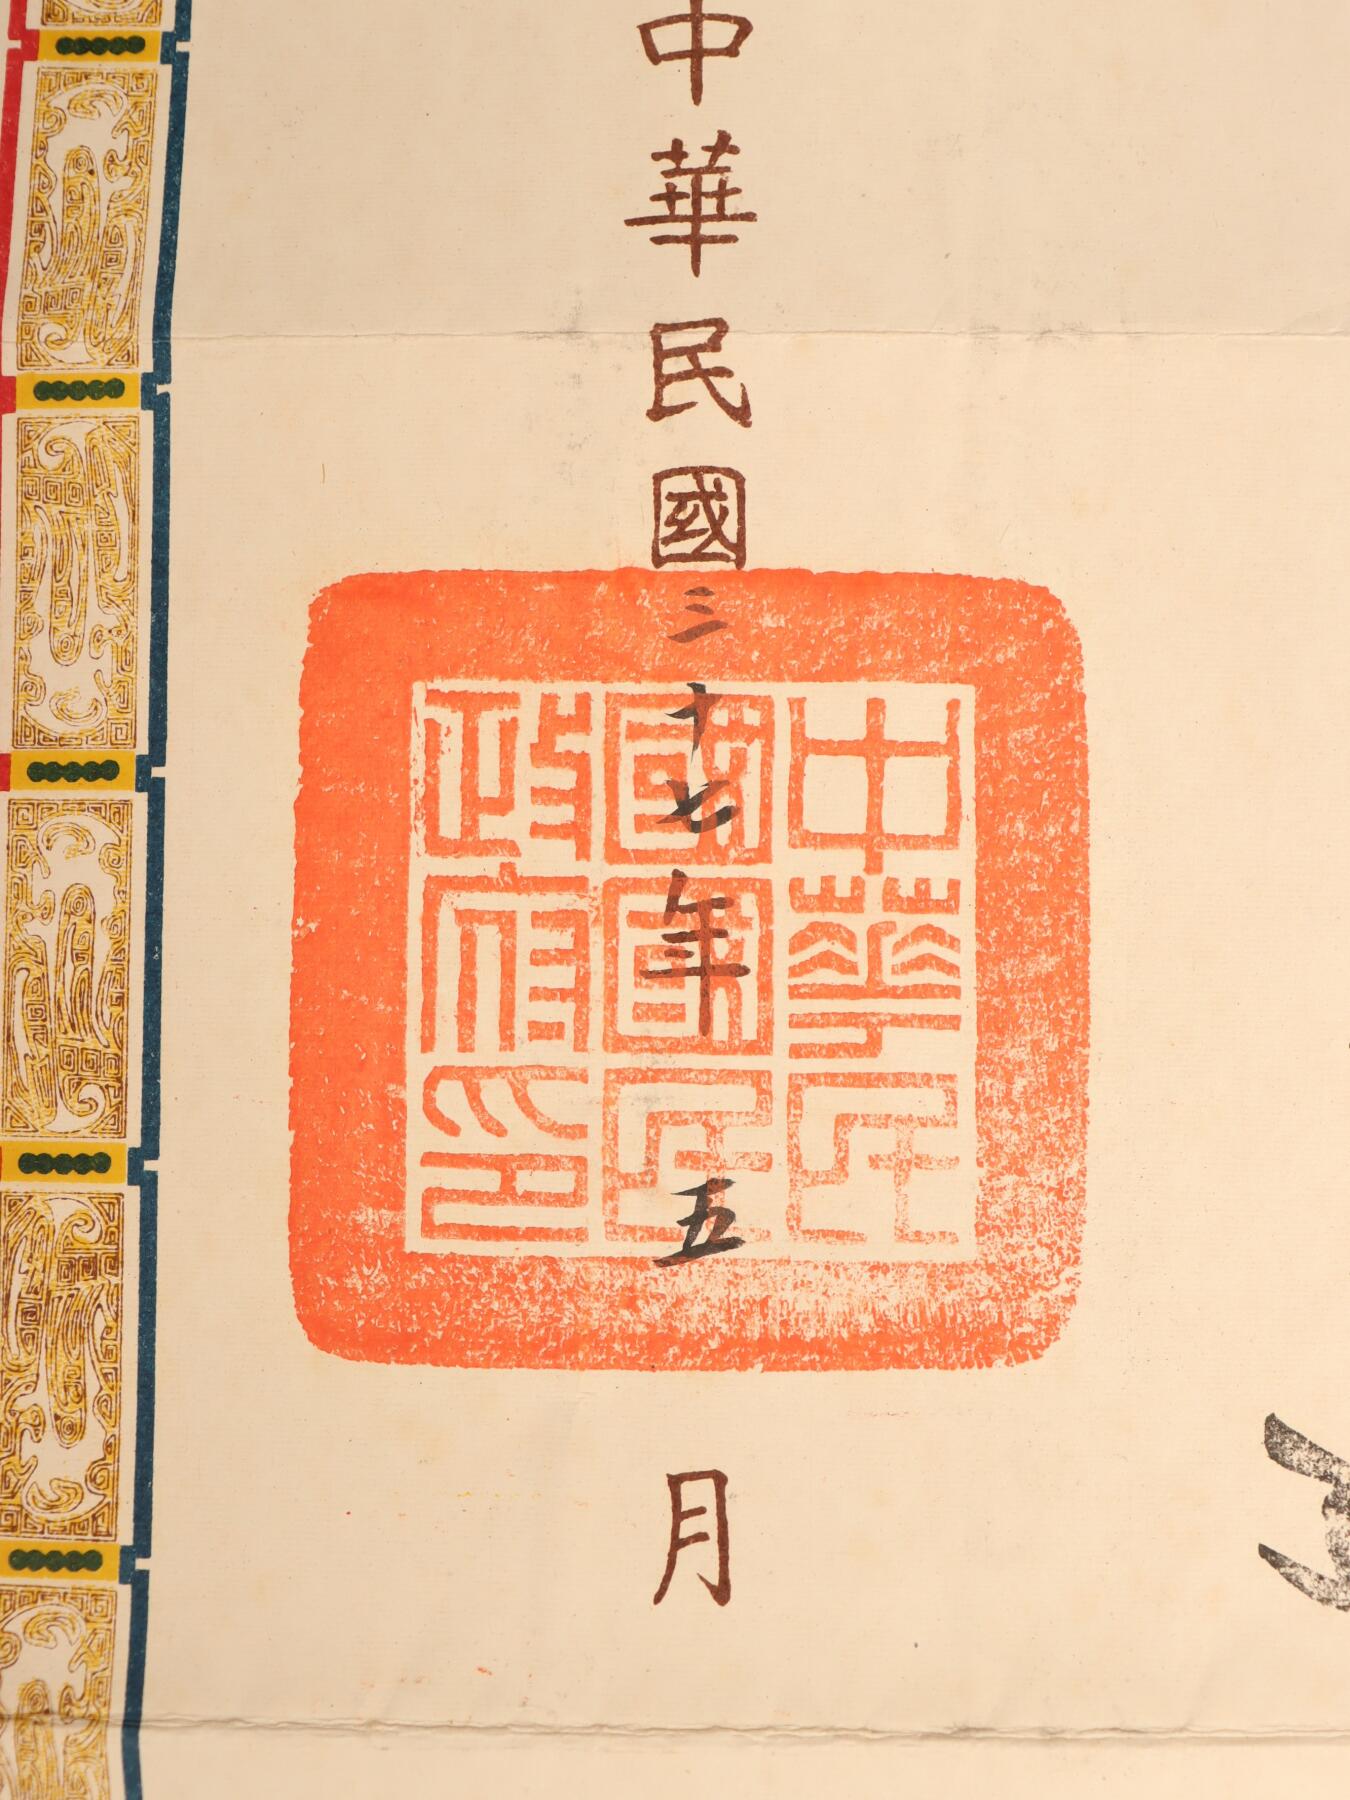 中華民國三十七年五月
中華民
國國民
政府印